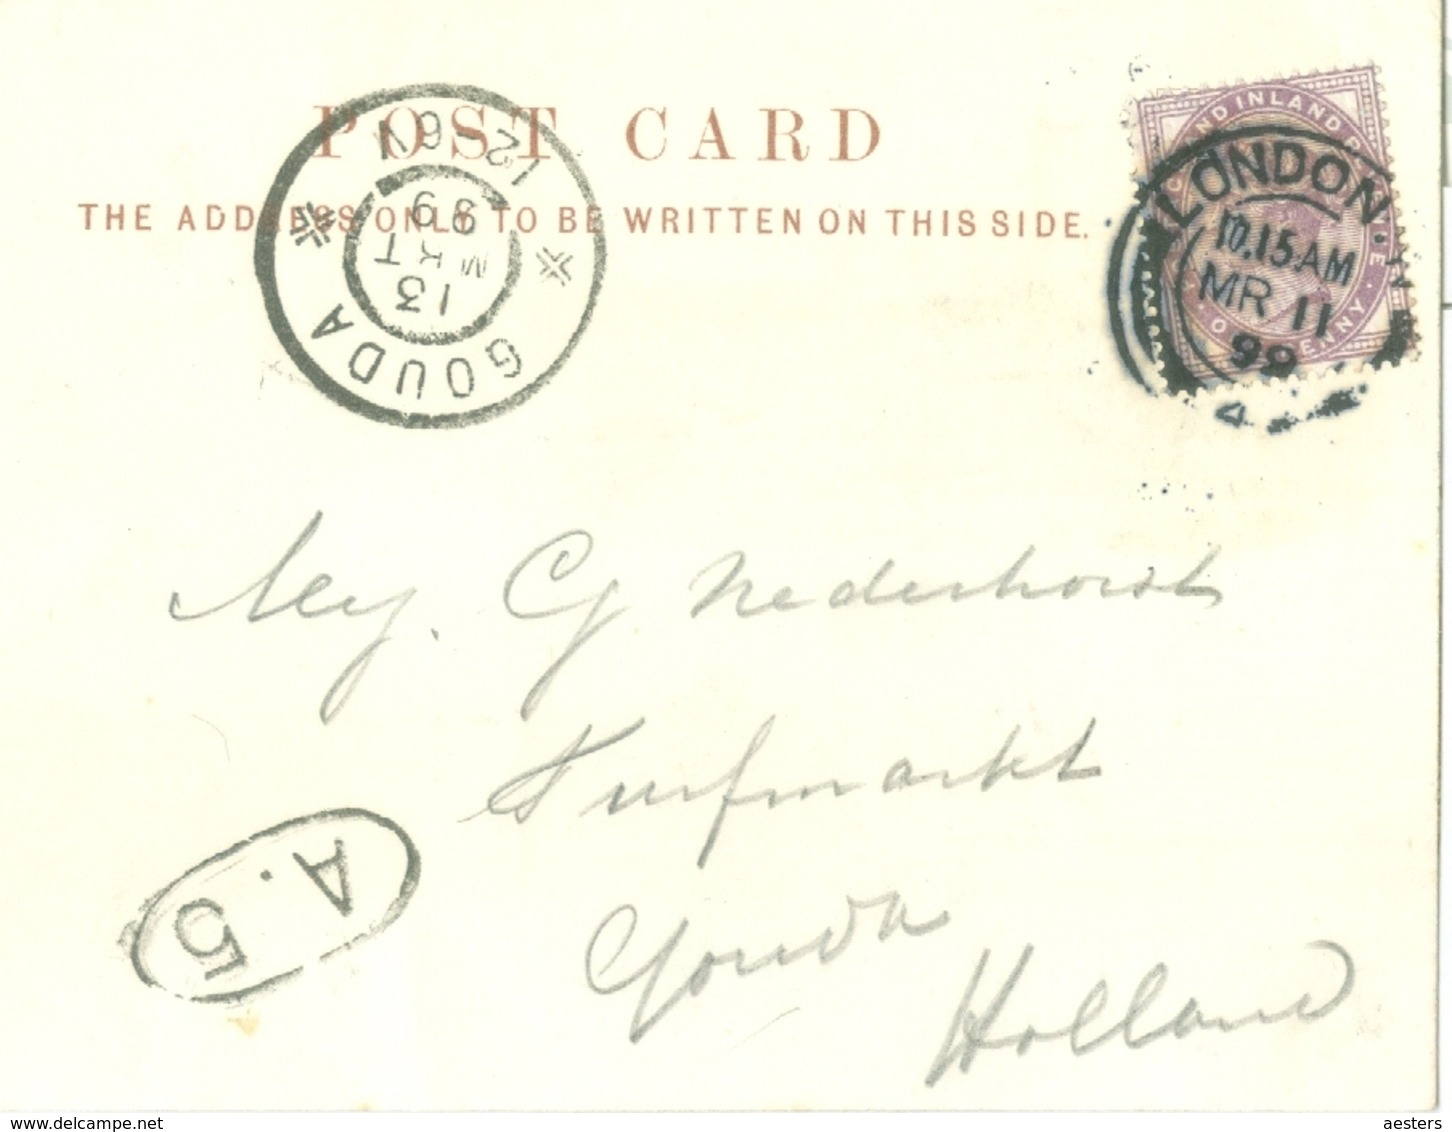 POST CARD
THE ADDRESS ONLY TO BE WRITTEN ON THIS SIDE.
GOUDA
12-6N
13
MRT
99
POSTAGE AND INLAND REVENUE
ONE PENNY
LONDON.W
10.15 AM
MR 11
99
4
Mej. G Nederhorst
Turfmarkt
Gouda
Holland
A.5
www.delcampe.net
aesters